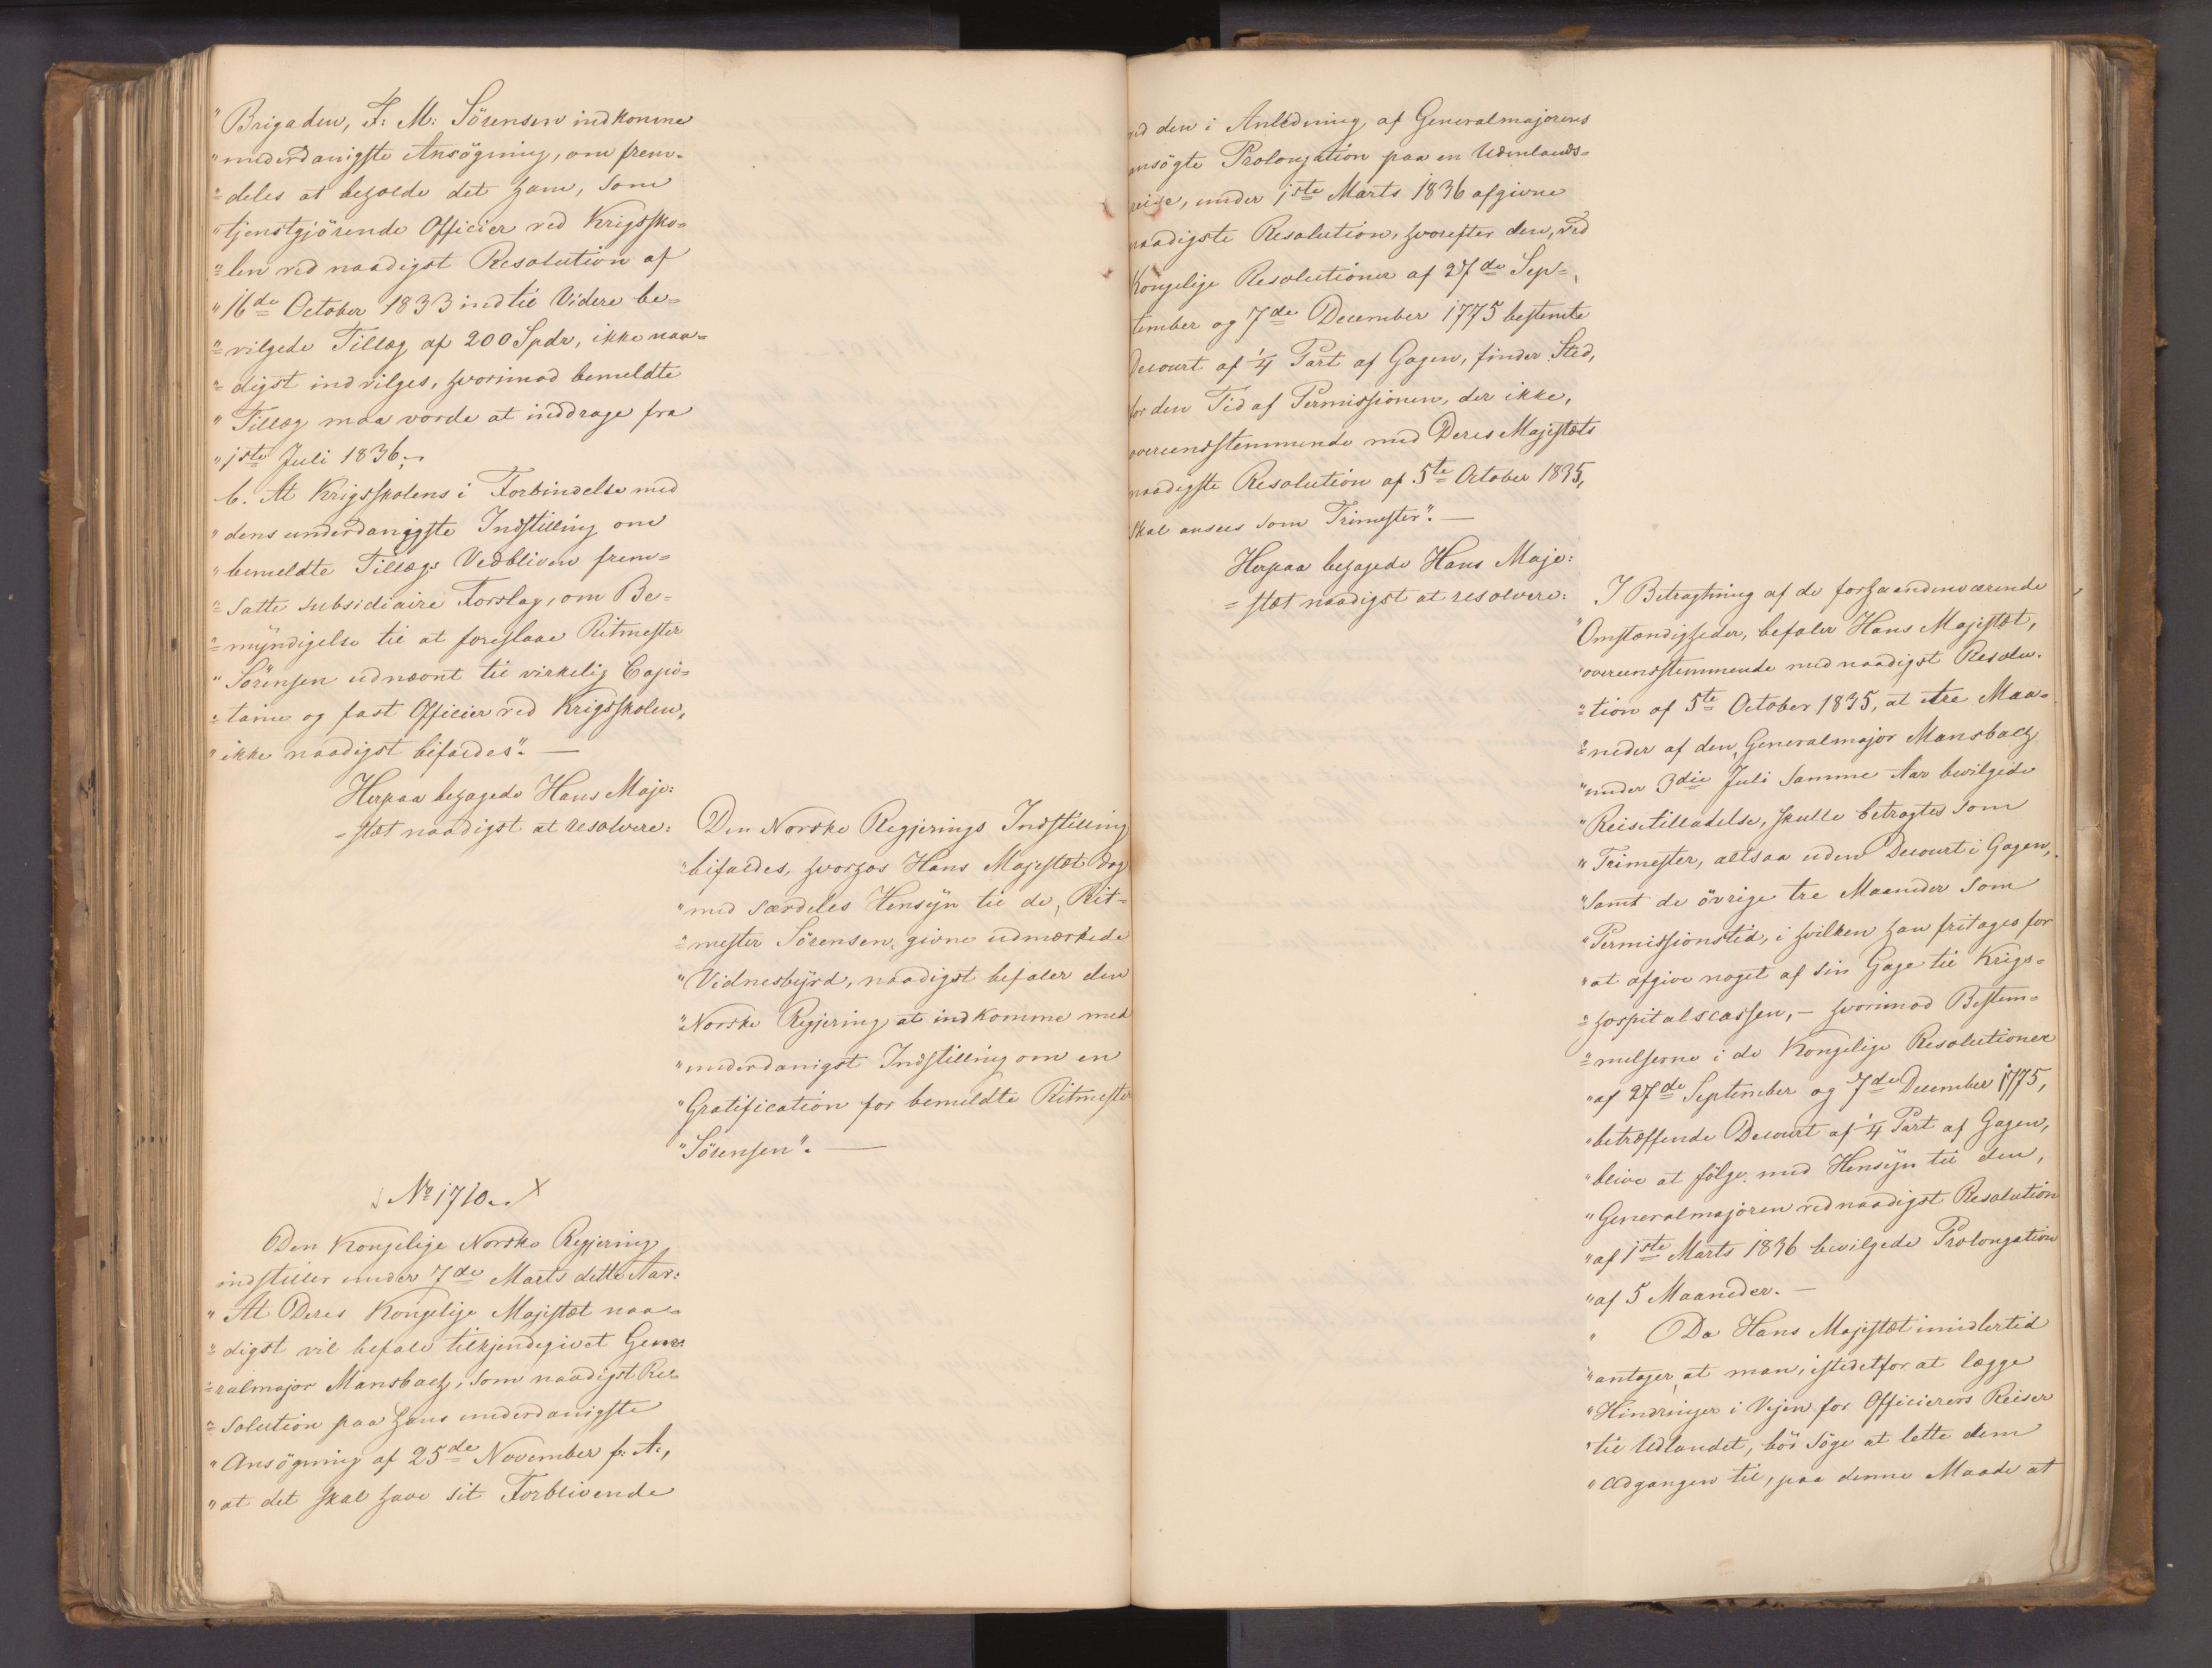 "Brigaden, F: M: Sörensen indkomne
"underdanigste Ansögning, om frem-
"=deles at beholde det ham, som
"tjenstgjörende Officier ved Krigssko=
"=len ved naadigst Resolution af
"16de October 1833 indtil Videre be=
"=vilgede Tillæg af 200 Spdr, ikke naa=
"=digst indvilges, hvorimod bemeldte
"Tillæg maa vorde at inddrage fra
"1ste Juli 1836;
b. At Krigsskolens i Forbindelse med
"dens underdanigste Indstilling om
"bemeldte Tillægs Vedbliven frem=
"=satte subsidiaire Forslag, om Be=
"=myndigelse til at foreslaae Ritmester
"Sörensen udnævnt til virkelig Capi=
"=taine og fast Officier ved Krigsskolen,
"ikke naadigst bifaldes". —
Herpaa behagede Hans Maje:
=stæt naadigst at resolvere:
Den Norske Regjerings Indstilling
"bifaldes, hvorhos Hans Majestæt dog
"med særdeles Hensyn til de, Rit=
"=mester Sörensen, givne udmærkede
"Vidnesbyrd, naadigst befaler den
"Norske Regjering at indkomme med
"underdanigst Indstilling om en
"Gratification for bemeldte Ritmester
"Sörensen". —
No 1710. X
Den Kongelige Norske Regjering
indstiller under 7de Marts dette Aar:
"At Deres Kongelige Majestæt naa=
"=digst vil befale tilkjendegivet Gene:
"=ralmajor Mansbach, som naadigst Re=
"=solution paa hans underdanigste
"Ansögning af 25de November f: A:,
"at det skal have sit Forblivende
ved den i Anledning af Generalmajorens
ansögte Prolongation paa en Udenlands=
reise, under 1ste Marts 1836 afgivne
naadigste Resolution, hvorefter den, ved
Kongelige Resolutioner af 27de Sep=
tember og 7de December 1775 bestemte
Decourt af 1/4 Part af Gagen, finder Sted,
for den Tid af Permissionen, der ikke,
overeensstemmende med Deres Majestæts
naadigste Resolution af 5te October 1835,
skal ansees som Trimester". —
Herpaa behagede Hans Maje:
=stæt naadigst at resolvere:
I Betragtning af de forhaandenværende
"Omstændigheder, befaler Hans Majestæt,
"overeensstemmende med naadigst Resolu=
"=tion af 5te October 1835, at tre Maa=
"=neder af den, Generalmajor Mansbach
"under 3die Juli samme Aar bevilgede
"Reisetilladelse, skulle betragtes som
"Trimester, altsaa uden Decourt i Gagen,
"samt de övrige tre Maaneder som
"Permissionstid, i hvilken han fritages for
"at afgive noget af sin Gage til Krigs=
"=hospitalscassen, — hvorimod Bestem=
"=melserne i de Kongelige Resolutioner
"af 27de September og 7de December 1775,
"betræffende Decourt af 1/4 Part af Gagen,
"blive at fölge med Hensyn til den,
"Generalmajoren ved naadigst Resolution
"af 1ste Marts 1836 bevilgede Prolongation
"af 5 Maaneder. —
" Da Hans Majestæt imidlertid
"antager, at man, istedetfor at lægge
"Hindringer i Vejen for Officierers Reiser
"til Udlandet, bör söge at lette dem
"Adgangen til, paa denne Maade at